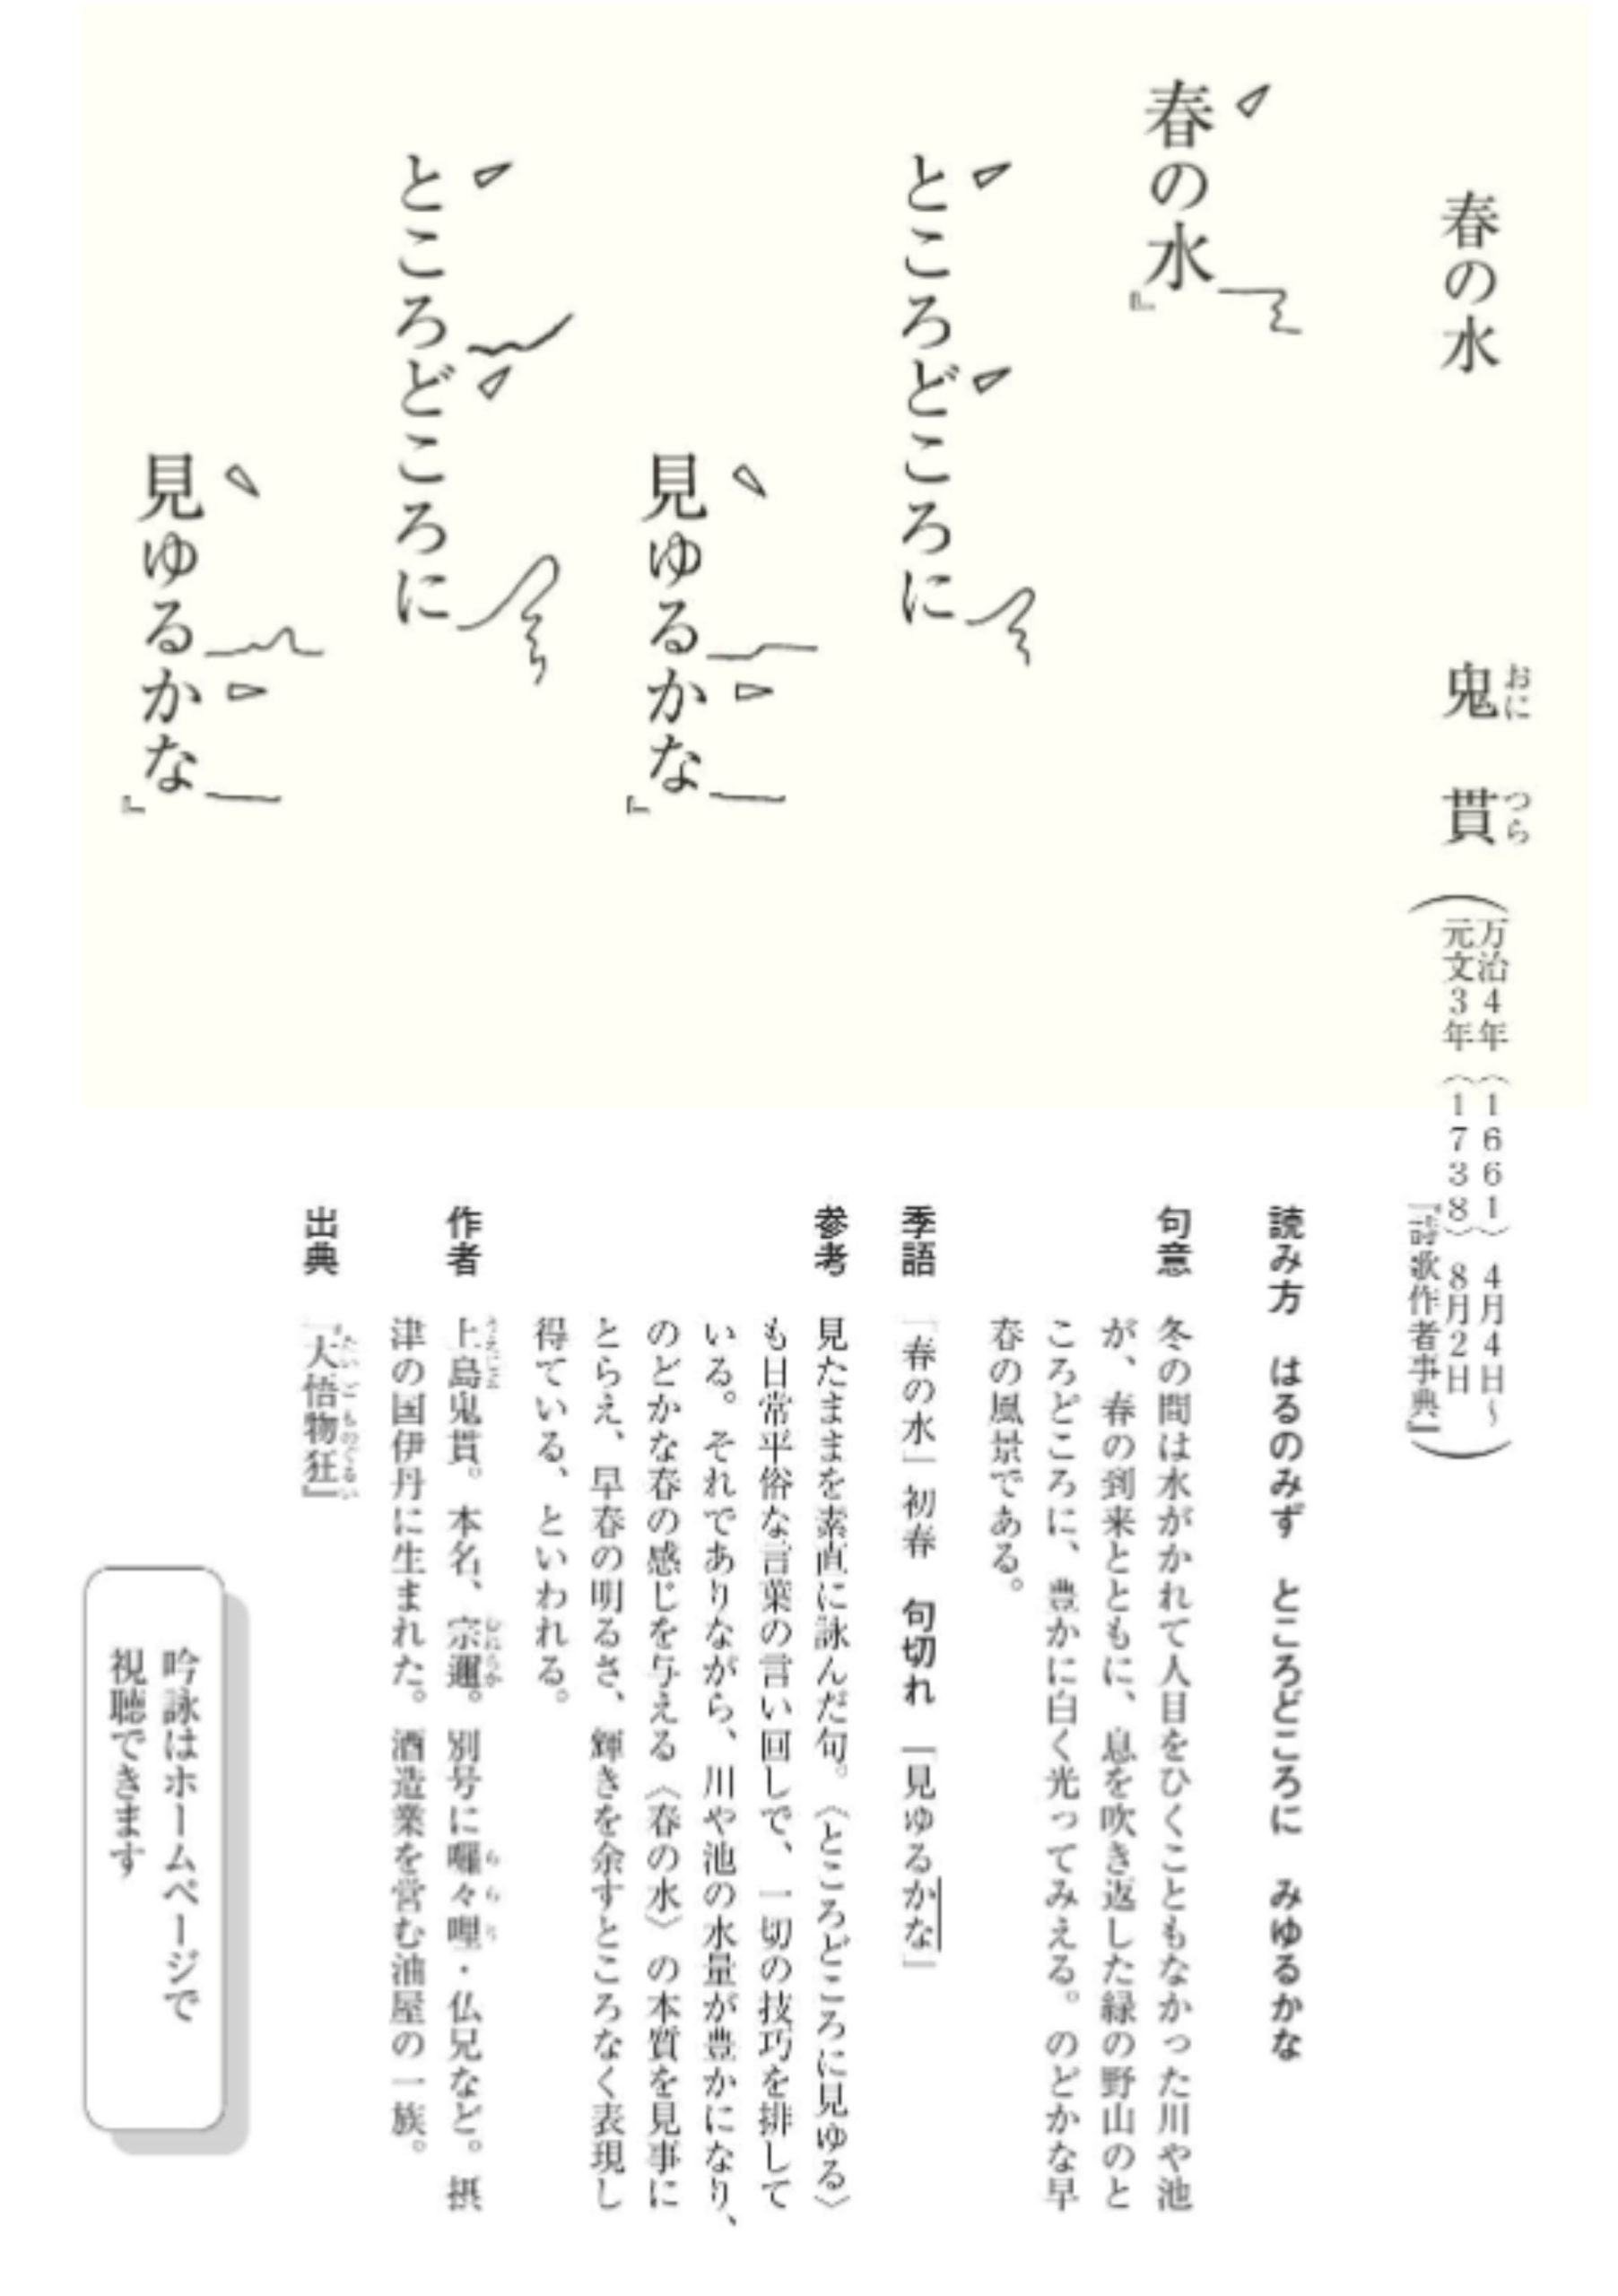 春の水
鬼貫
おに
つら
万治4年(1661)4月4日〜
元文3年(1738)8月2日
『詩歌作者事典』
春の水』
ところどころに
見ゆるかな』
ところどころに
見ゆるかな』
読み方 はるのみず ところどころに みゆるかな
句意 冬の間は水がかれて人目をひくこともなかった川や池
が、春の到来とともに、息を吹き返した緑の野山のと
ころどころに、豊かに白く光ってみえる。のどかな早
春の風景である。
季語 「春の水」初春 句切れ 「見ゆるかな」
参考 見たままを素直に詠んだ句。〈ところどころに見ゆる〉
も日常平俗な言葉の言い回しで、一切の技巧を排して
いる。それでありながら、川や池の水量が豊かになり、
のどかな春の感じを与える〈春の水〉の本質を見事に
とらえ、早春の明るさ、輝きを余すところなく表現し
得ている、といわれる。
作者 上島鬼貫。本名、宗邇。別号に囉々哩・仏兄など。摂
ららり
津の国伊丹に生まれた。酒造業を営む油屋の一族。
出典 『大悟物狂』
たいごものぐるい
吟詠はホームページで
視聴できます